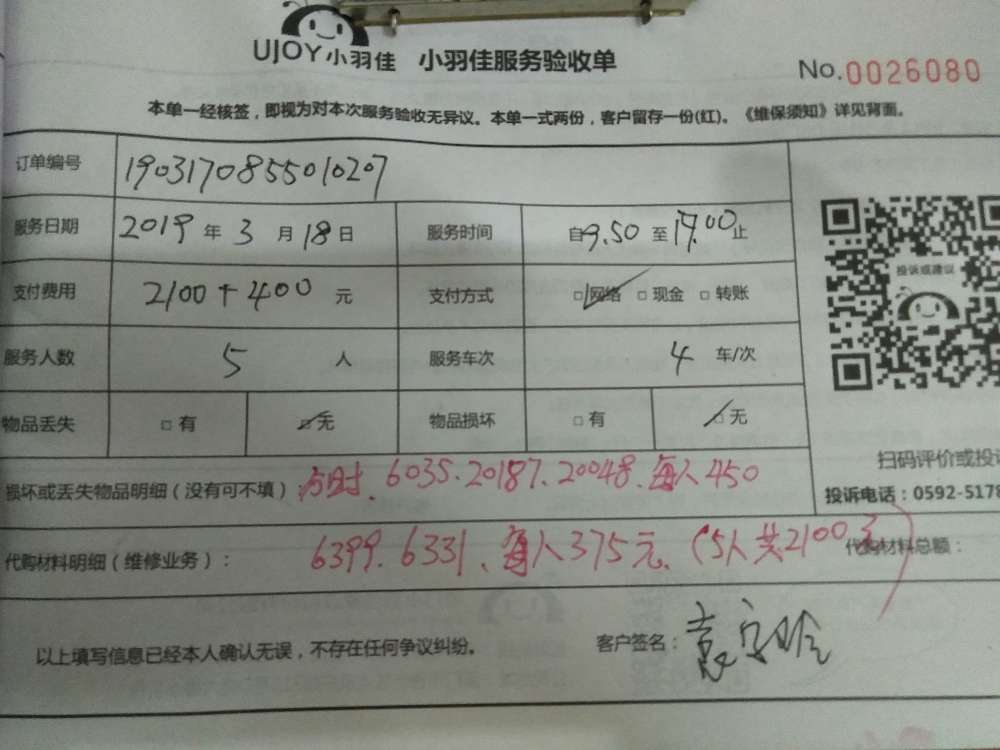 UJOY小羽佳 小羽佳服务验收单
No.0026080
本单一经核签，即视为对本次服务验收无异议。本单一式两份，客户留存一份(红)。《维保须知》详见背面。
订单编号 1903170855010207
服务日期 2019年3月18日 服务时间 自9.50至17.00止
投诉或建议
支付费用 2100+400 元 支付方式 □网络 □现金 □转账
服务人数 5 人 服务车次 4 车/次
物品丢失 □有 □无 物品损坏 □有 □无
扫码评价或投诉
损坏或丢失物品明细（没有可不填） 6035.20187.20048.每人450
投诉电话：0592-5178
代购材料明细（维修业务）： 6399.6331、每人375元、(5人共2100元)
代购材料总额：
以上填写信息已经本人确认无误，不存在任何争议纠纷。 客户签名：